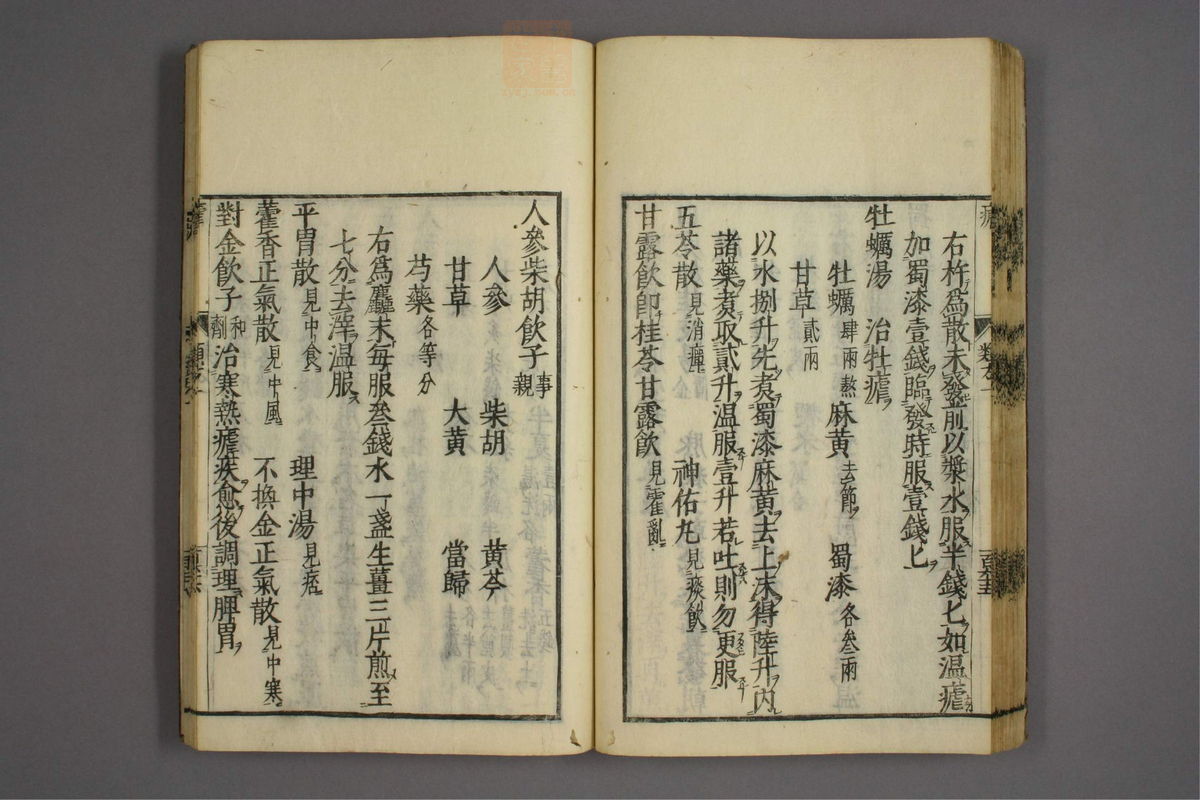 右杵爲散未發前以漿水服半錢匕如温瘧
加蜀漆壹錢臨發時服壹錢匕
牡蠣湯　治牡瘧
牡蠣肆兩熬　麻黄去節　蜀漆各叁兩
甘草貳兩
以水捌升先煑蜀漆麻黄去上沫得陸升内
諸藥煑取貳升温服壹升若吐則勿更服
五苓散見消癉　神佑丸見痰飮
甘露飮即桂苓甘露飮見霍亂
人參柴胡飮子事親
人參　柴胡　黄芩
甘草　大黄　當歸
芍藥各等分
右爲麤末毎服叁錢水一盞生薑三片煎至
七分去滓温服
平胃散見中食　理中湯見痞
藿香正氣散見中風　不換金正氣散見中寒
對金飮子和劑治寒熱瘧疾愈後調理脾胃